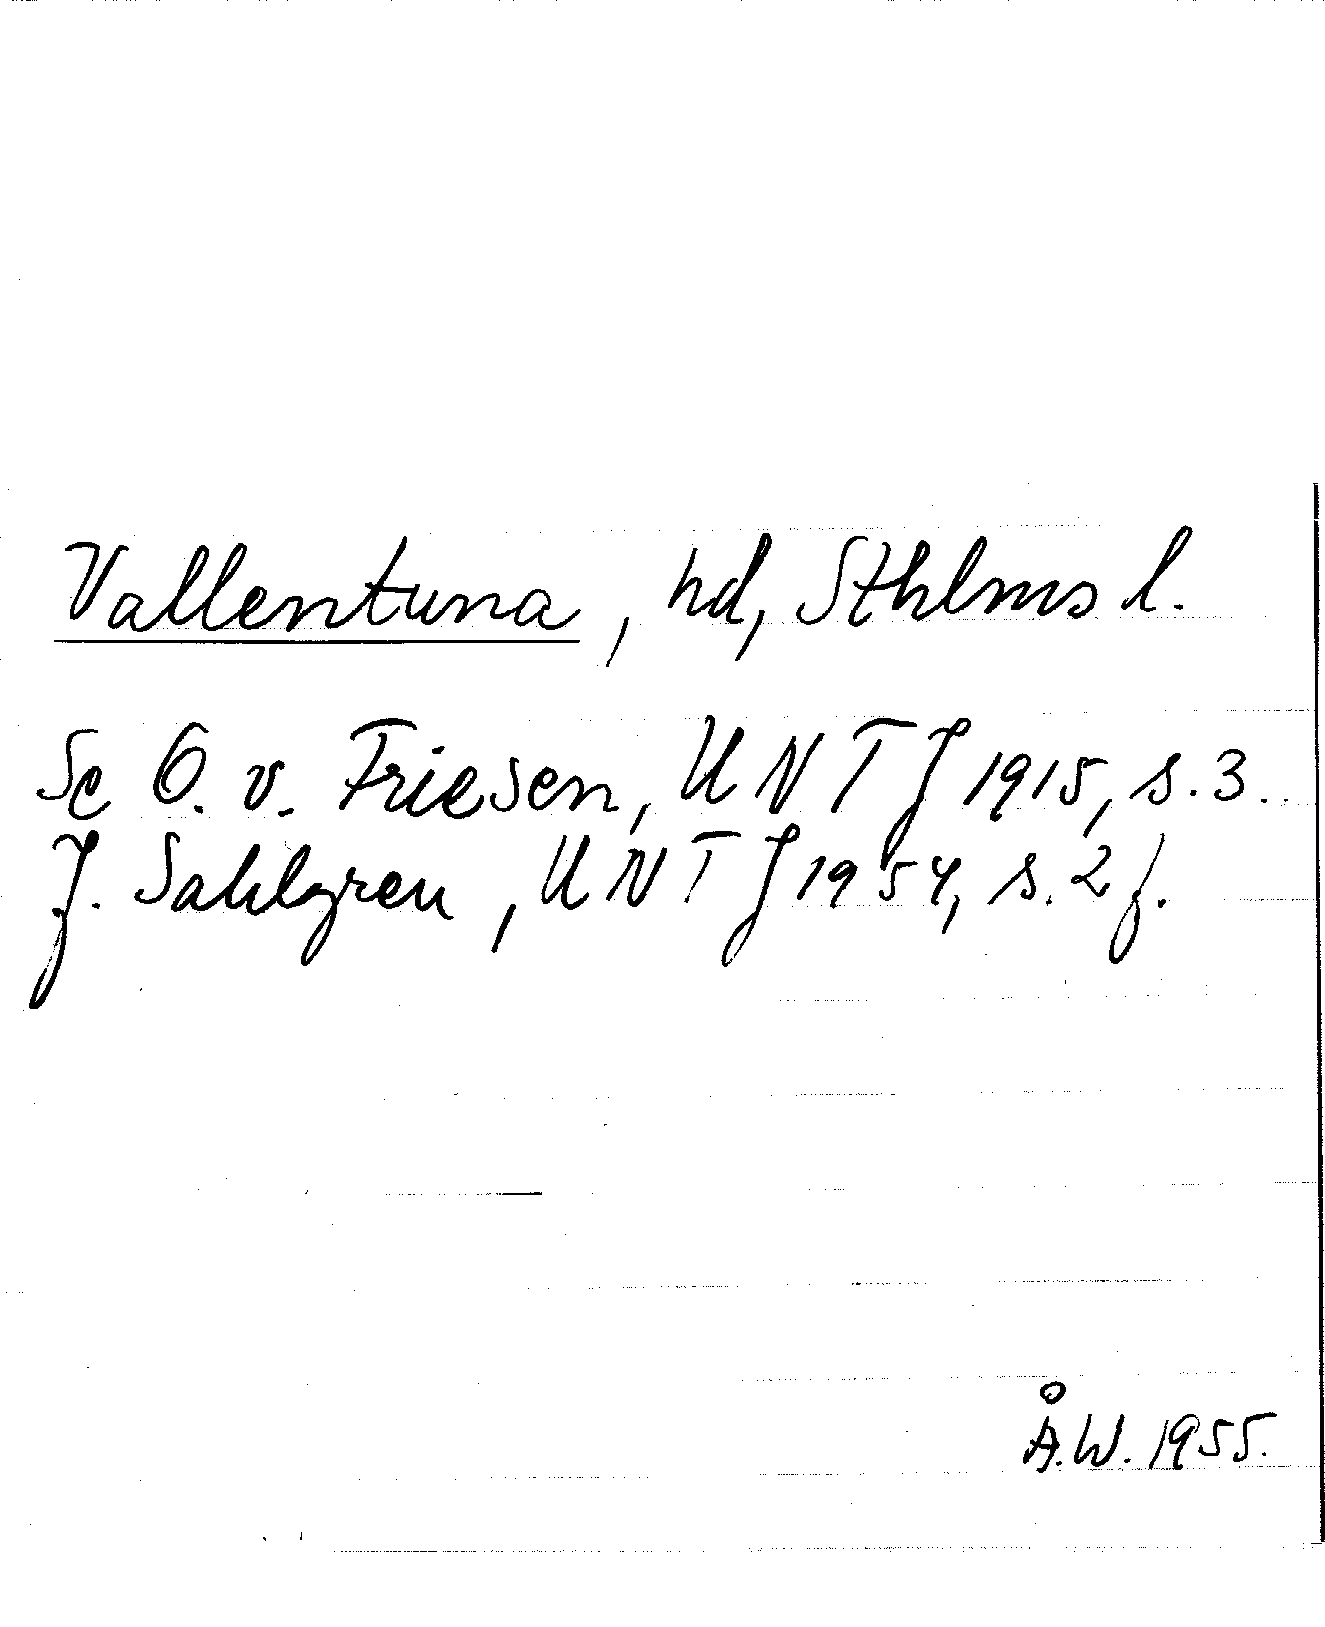 Vallentuna, hd, Sthlms l.
Se O. v. Friesen, UNT J 1915, s. 3.
J. Sahlgren, UNT J 1954, s. 2 f.
Å.W. 1955.